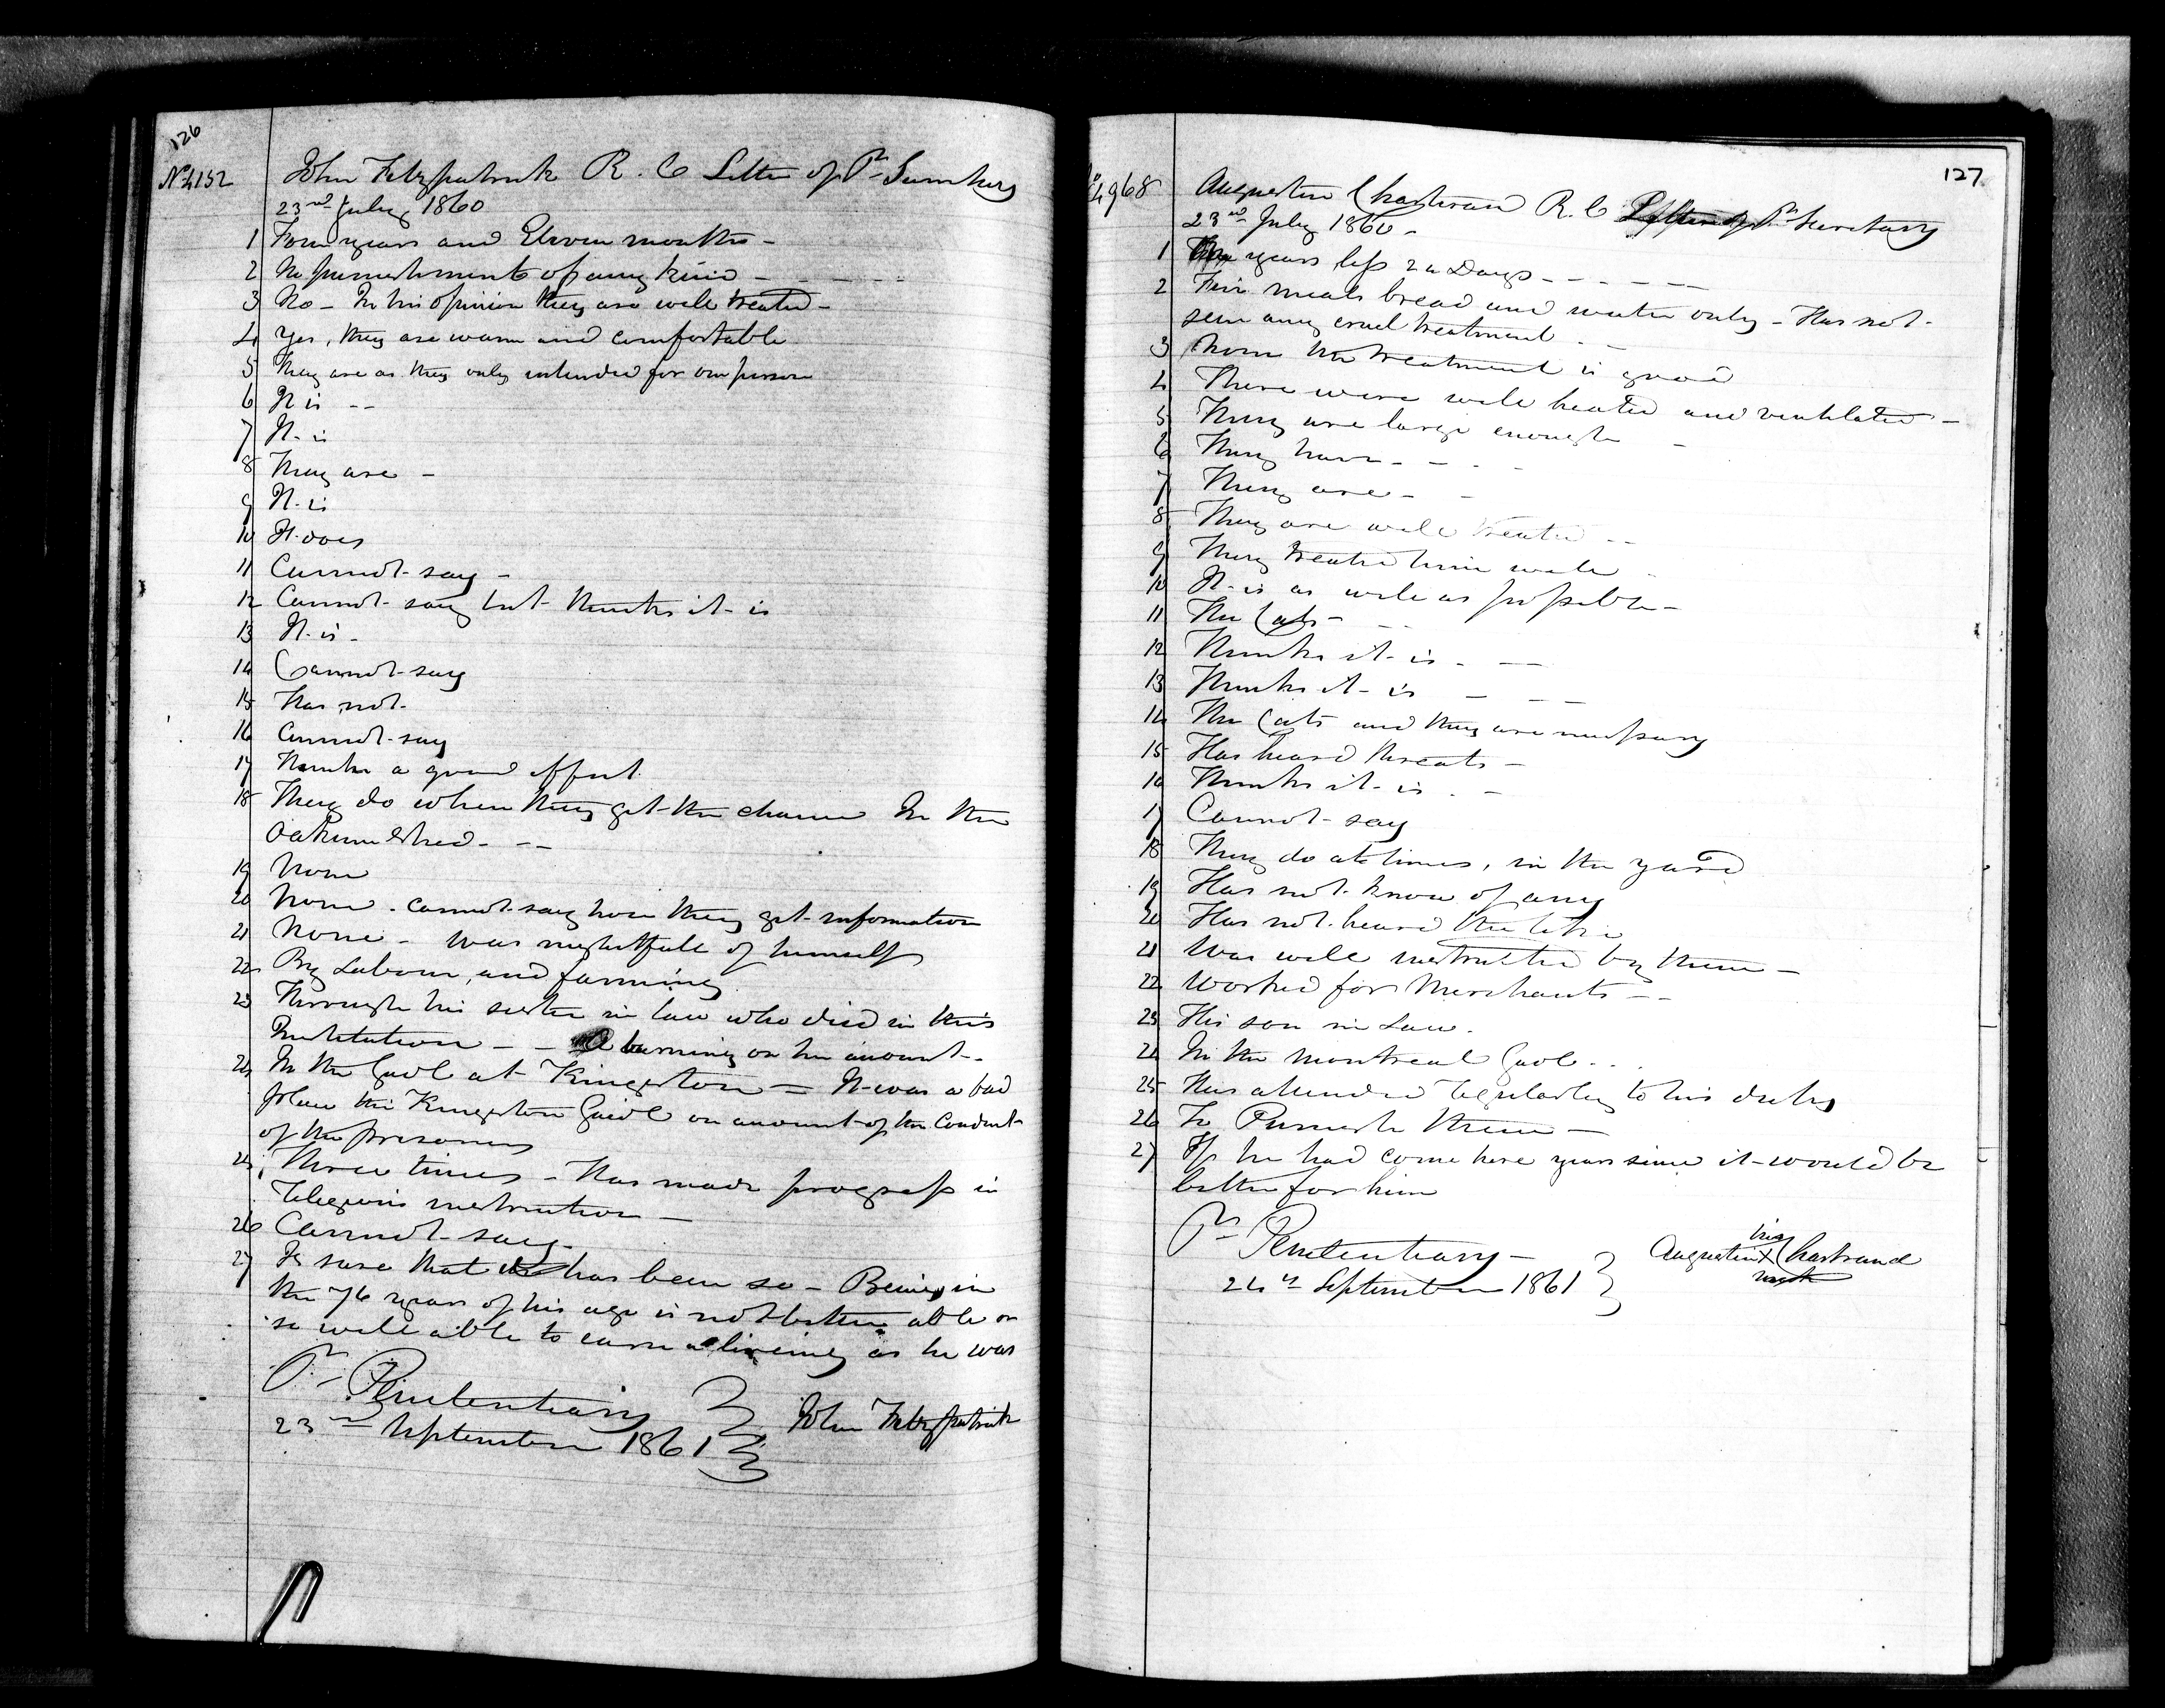 126
No 4152 John Fitzpatrick R. C Letter of Pl Secretary
23rd July 1860
1 Four years and Eleven months -
2 No punishments of any kind - - - - -
3 No - In his opinion they are well treated -
4 Yes, they are warm and comfortable
5 They are as they only intended for one person
6 It is - -
7 It is
8 They are -
9 It is
10 It does
11 Cannot say -
12 Cannot say but thinks it is
13 It is -
14 Cannot say
15 Has not
16 Cannot say
17 Thinks a good effect
18 They do when they get the chance In the
Oakum Shed - - -
19 None
20 None. cannot say how they get information
21 None - was neglectfull of himself
22 By Labour, and farming
23 Through his sister in law who died in this
Institution - - A burning on her account -
24 In the Gaol at Kingston = It was a bad
place the Kingston Gaol on account of the Conduct
of the prisoners
25 Three times - Has made progress in
Religious instruction -
26 Cannot say.
27 Is sure that has been so - Being in
the 76 years of his age is not better able or
so well able to earn a living as he was
Pl Penitentiary
23rd September 1861 John Fitzpatrick
127
No 4968 Augustin Chartrand R. C Letter of Pl Secretary
23rd July 1860 -
1 years less 24 Days - - - - - -
2 Five meals bread and water only - Has not
seen any cruel treatment - -
3 None the treatment is good
4 There were well heated and ventilated -
5 They are large enough -
6 They have - - - -
7 They are - -
8 They are well treated - -
9 They treated him well -
10 It is as well as possible -
11 The Cats - - -
12 Thinks it is - -
13 Thinks it is - - -
14 The Cats and they are necessary
15 Has heard threats -
16 Thinks it is . -
17 Cannot say
18 They do at times, in the yard
19 Has not know of any
20 Has not heard
21 Was well instructed by them -
22 Worked for Merchants - -
23 His son in Law.
24 In the Montreal Gaol - - .
25 Has attended regularly to his duty
26 To Punish them -
27 If he had come here years since it would be
better for him
Pl Penitentiary -
24th September 1861
his
Augustin X Chartrand
mark